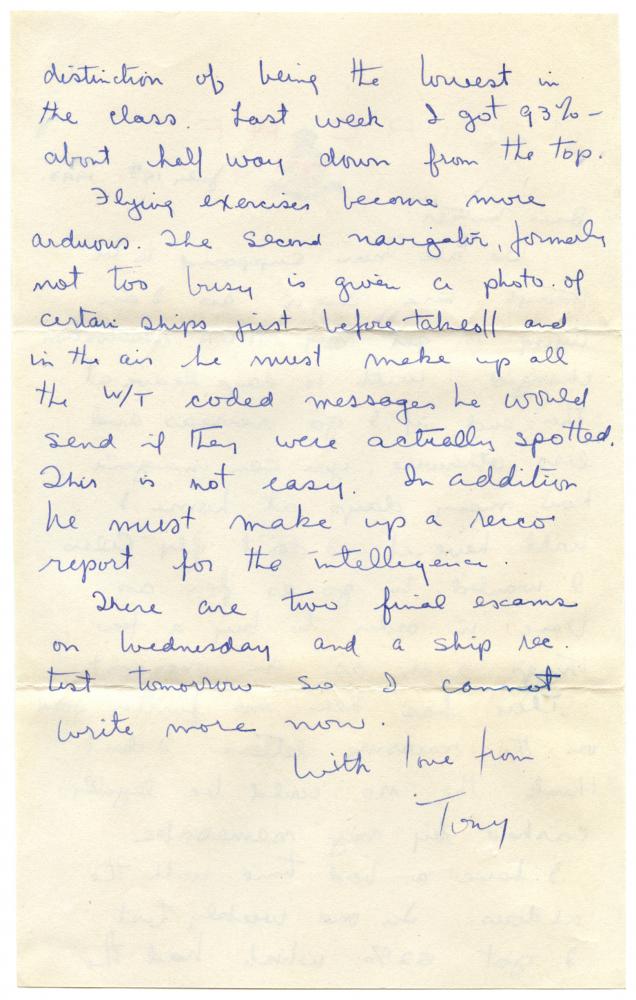 distinction of being the lowest in
the class. Last week I got 93% –
about half way down from the top.
Flying exercises become more
arduous. The second navigator, formerly
not too busy is given a photo. of
certain ships just before takeoff and
in the air he must make up all
the W/T coded messages he would
send if they were actually spotted.
This is not easy. In addition
he must make up a recco
report for the intelligence.
There are two final exams
on Wednesday and a ship rec.
test tomorrow so I cannot
write more now.
With love from
Tony